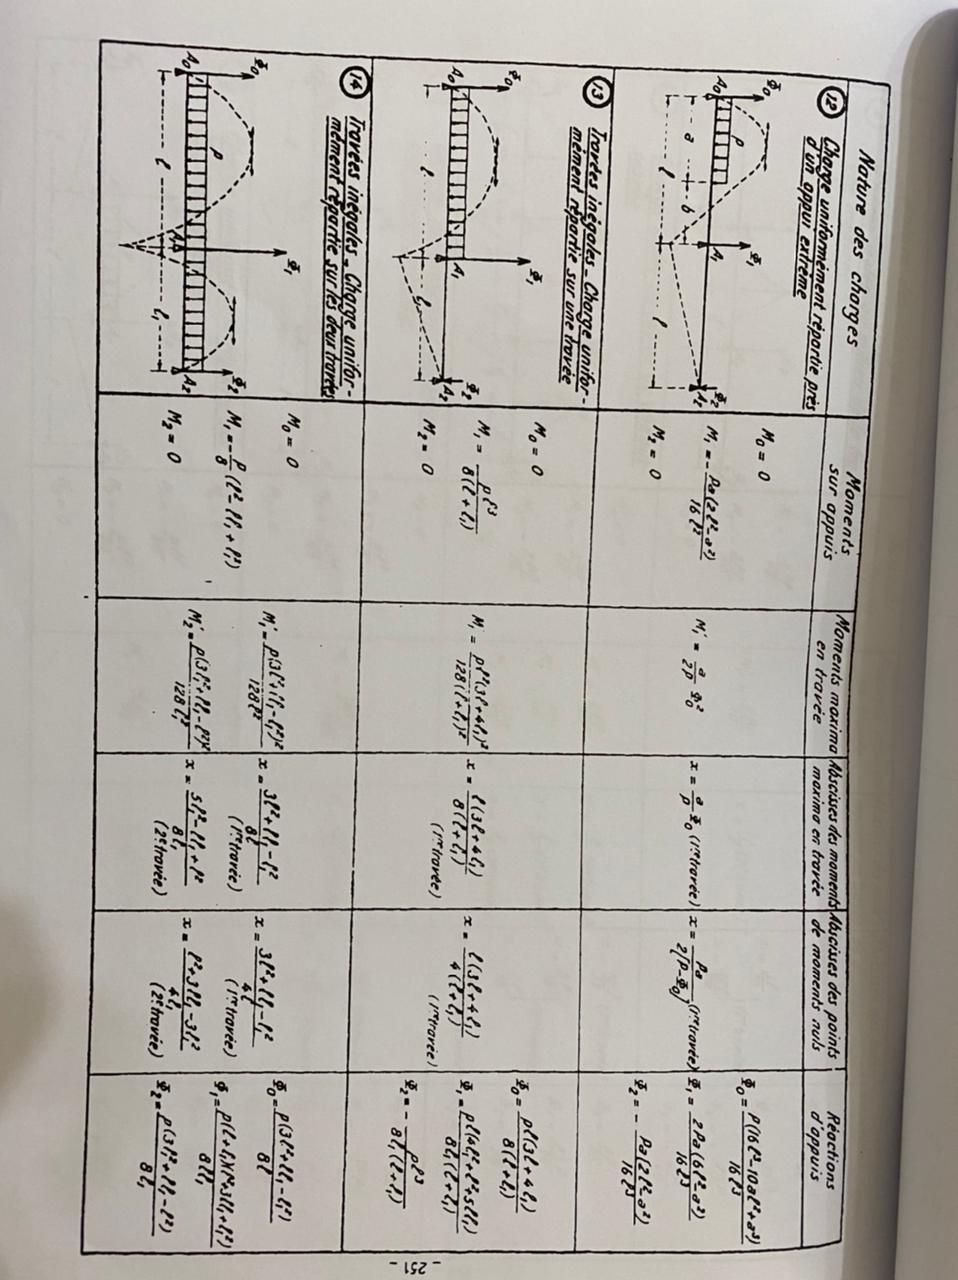 Nature des charges
Moments
sur appuis
Moments maxima
en travée
Abscisses des moments
maxima en travée
Abscisses des points
de moments nuls
Réactions
d'appuis
12 Charge uniformément répartie près
d'un appui extrême
Φ₀ p Φ₁ Φ₂
A₀ A₁ A₂
a b
l l
M₀ = 0
M₁ = - Pa(2l²-a²)/16l²
M₂ = 0
M₁' = a/2P Φ₀²
x = a/P Φ₀ (1re travée)
x = Pa/2[P-Φ₀] (1re travée)
Φ₀ = P(16l³-10al²+a³)/16l³
Φ₁ = 2Pa(6l²-a²)/16l³
Φ₂ = - Pa(2l²-a²)/16l³
13 Travées inégales - Charge unifor-
mément répartie sur une travée
Φ₀ Φ₁ Φ₂
A₀ A₁ A₂
l l₁
M₀ = 0
M₁ = pl³/8(l+l₁)
M₂ = 0
M₁ = pl²(3l+4l₁)²/128(l+l₁)²
x = l(3l+4l₁)/8(l+l₁)
(1re travée)
x = l(3l+4l₁)/4(l+l₁)
(1re travée)
Φ₀ = pl(3l+4l₁)/8(l+l₁)
Φ₁ = pl(4l₁²+l²+5ll₁)/8l₁(l+l₁)
Φ₂ = - pl³/8l₁(l+l₁)
14 Travées inégales - Charge unifor-
mément répartie sur les deux travées
Φ₀ p Φ₁ Φ₂
A₀ A₁ A₂
l l₁
M₀ = 0
M₁ = - p/8 (l²-ll₁+l₁²)
M₂ = 0
M₁' = p(3l²+ll₁-l₁²)²/128l²
M₂' = p(3l₁²+ll₁-l²)²/128l₁²
x = 3l²+ll₁-l₁²/8l
(1re travée)
x = 5l₁²-ll₁+l²/8l₁
(2e travée)
x = 3l²+ll₁-l₁²/4l
(1re travée)
x = l²+3ll₁-3l₁²/4l₁
(2e travée)
Φ₀ = p(3l²+ll₁-l₁²)/8l
Φ₁ = p(l+l₁)(l²+3ll₁+l₁²)/8ll₁
Φ₂ = p(3l₁²+ll₁-l²)/8l₁
- 251 -